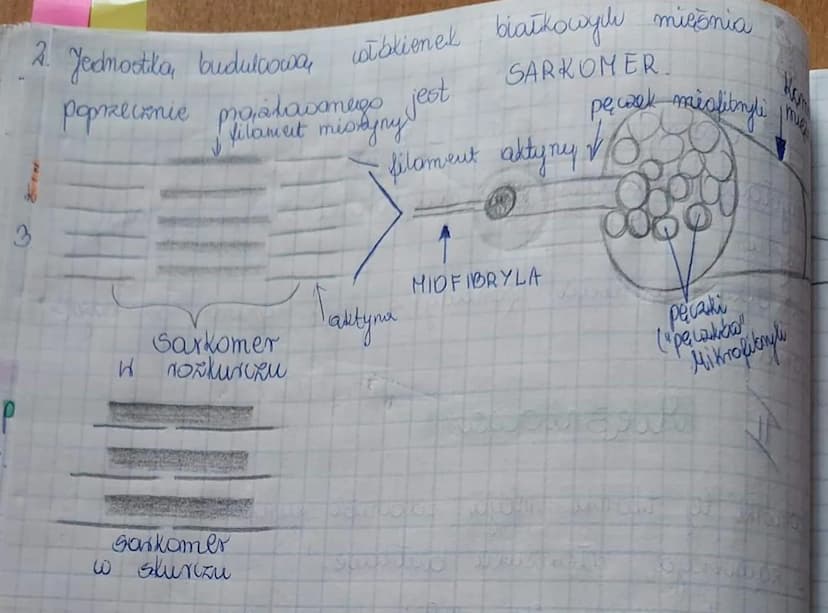 2. Jednostką budulcową włókienek białkowych mięśnia
poprzecznie prążkowanego jest SARKOMER.
filament miozyny
filament aktyny
pęczek miofibryli
3
MIOFIBRYLA
aktyna
pęczki
("pęczków"
Mikrofibryli
sarkomer
w rozkurczu
P
sarkomer
w skurczu